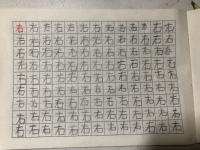 右右右右右右右右右右右右右右
右右右右右右右右右右右右右右
右右右右右右右右右右右右右右
右右右右右右右右右右右右右右
右右右右右右右右右右右右右右
右右右右右右右右右右右右右右
右右右右右右右右右右右右右右
右右右右右右右右右右右右右右
右右右右右右右右右右右右右右